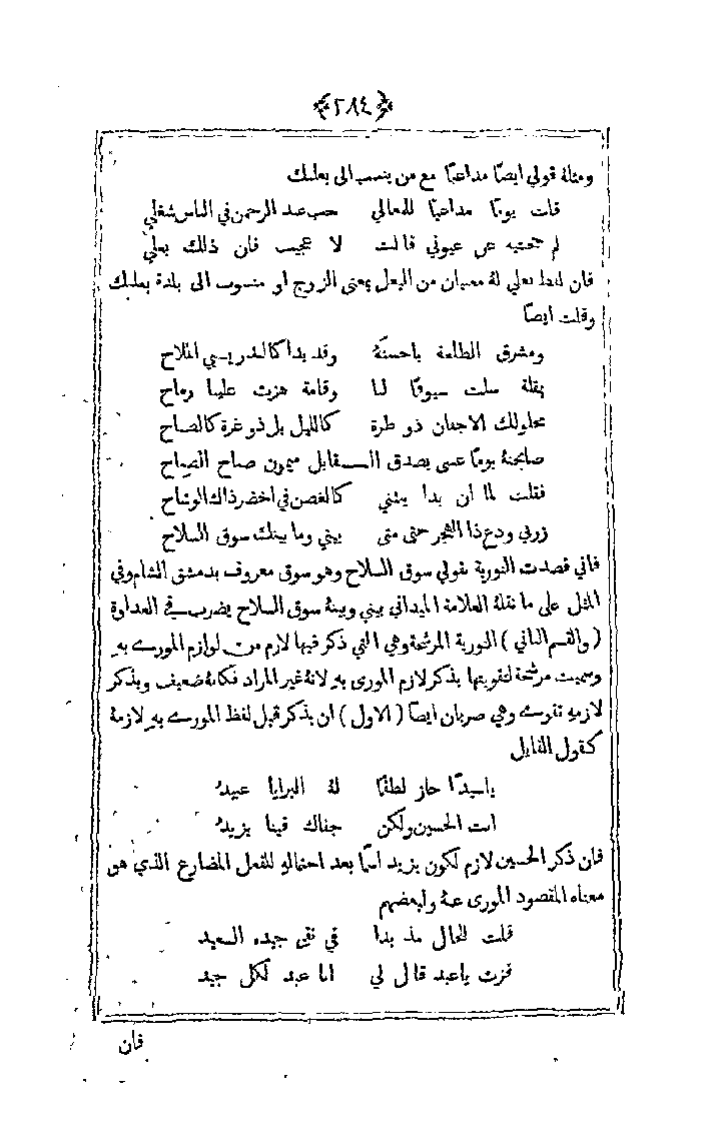 ﴿٢٨٤﴾
ومثلهُ قولي ايضًا مداعبًا مع من ينسب الى بعلبك
قلت يومًا مداعبًا للمعالي حب عبد الرحمن في الناس شغلي
لم حجبتيه عن عيوني قالت لا عجيب فان ذلك بعلي
فان لفظ بعلي لهُ معنيان من البعل بمعنى الزوج او منسوب الى بلدة بعلبك
وقلت ايضًا
ومشرق الطلعة يا حسنهُ وقد بدا كالبدر بين الملاح
بمقلة سلت سيوفًا لنا وقامة هزت علينا رماح
محلولك الاجفان ذو طرة كالليل بل ذو غرة كالصباح
صابحتهُ يومًا عسى يصدق الـــفابل ميمون صباح الصباح
فقلت لما ان بدا ينثني كالغصن في اخضر ذاك الوشاح
زرني ودع ذا الهجر حتى متى بيني وما بينك سوق السلاح
فاني قصدت التورية بقولي سوق السلاح وهو سوق معروف بدمشق الشام وفي
المثل على ما نقلهُ العلامة الميداني بيني وبينهُ سوق السلاح يضرب في العداوة
(والقسم الثاني) التورية المرشحة وهي التي ذكر فيها لازم من لوازم المورے بهِ
وسميت مرشحة لتقويتها بذكر لازم المورى بهِ لانهُ غير المراد فكانهُ ضعيف وبذكر
لازمهِ تقوے وهي ضربان ايضًا (الاول) ان يذكر قبل لفظ المورے بهِ لازمهُ
كقول القايل
يا سيدًا حاز لطفًا لهُ البرايا عبيدُ
انت الحسين ولكن جفاك فينا يزيدُ
فان ذكر الحسين لازم لكون يزيد اسمًا بعد احتمالهِ للفعل المضارع الذي هو
معناه المقصود المورى عنهُ ولبعضهم
قلت للخال مذ بدا في نقي جيده السعيد
فزت يا عبد قال لي انا عبد لكل جيد
فان